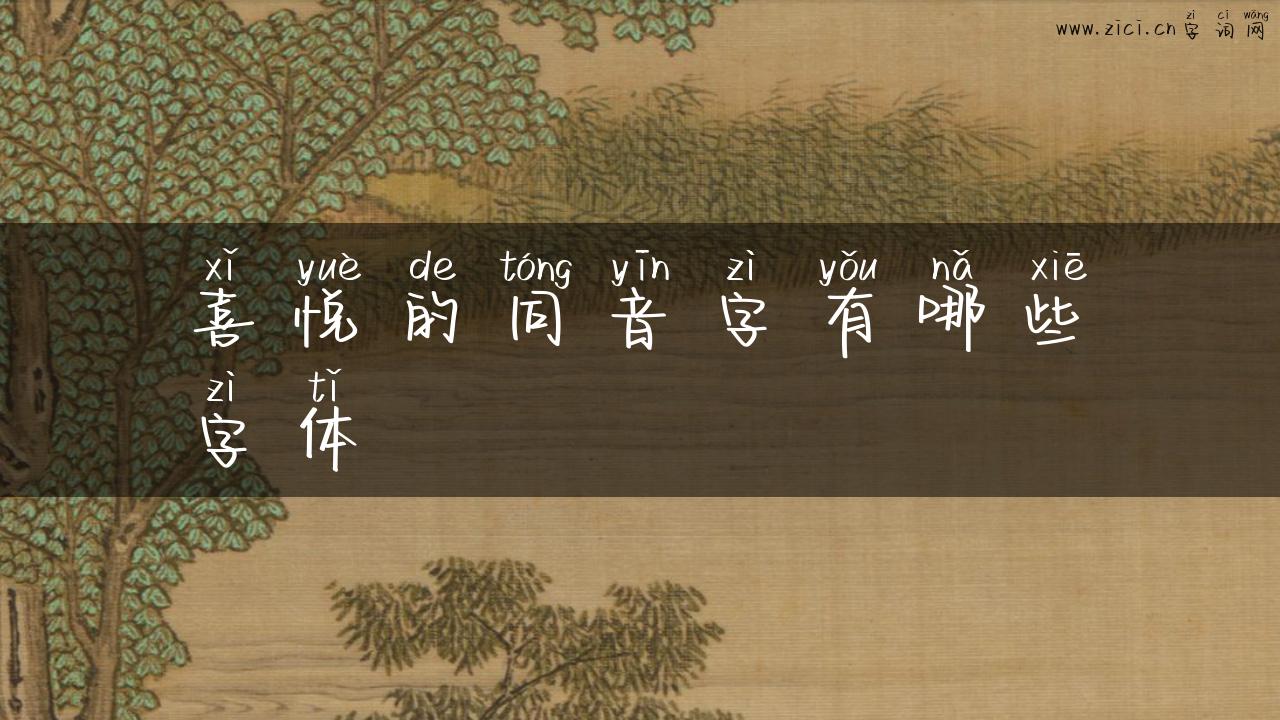 zì cí wǎng
www.zici.cn 字词网
xǐ yuè de tóng yīn zì yǒu nǎ xiē
喜悦的同音字有哪些
zì tǐ
字体